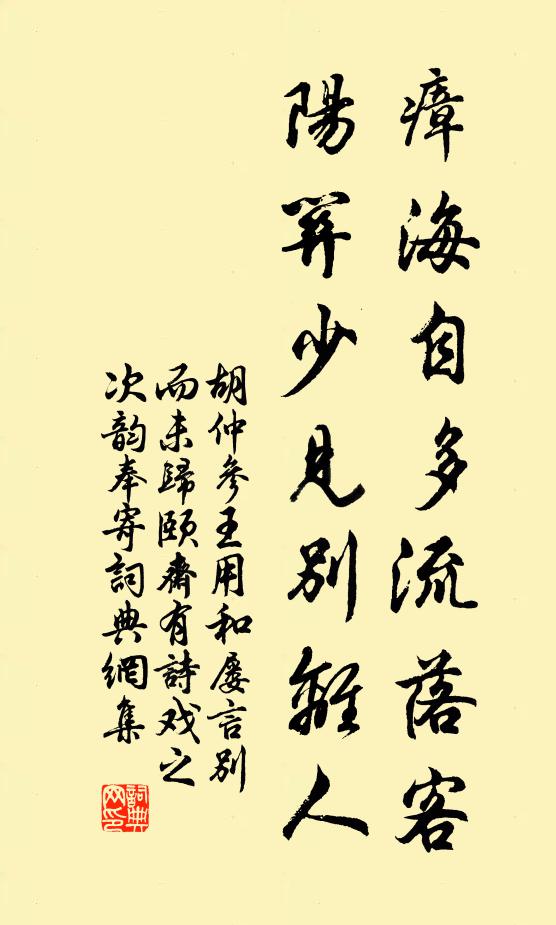 瘴海自多流落客
陽関少見別離人
胡仲參王用和屡言別
而未歸頤齋有詩戏之
次韵奉寄詞典網集
詞典网印